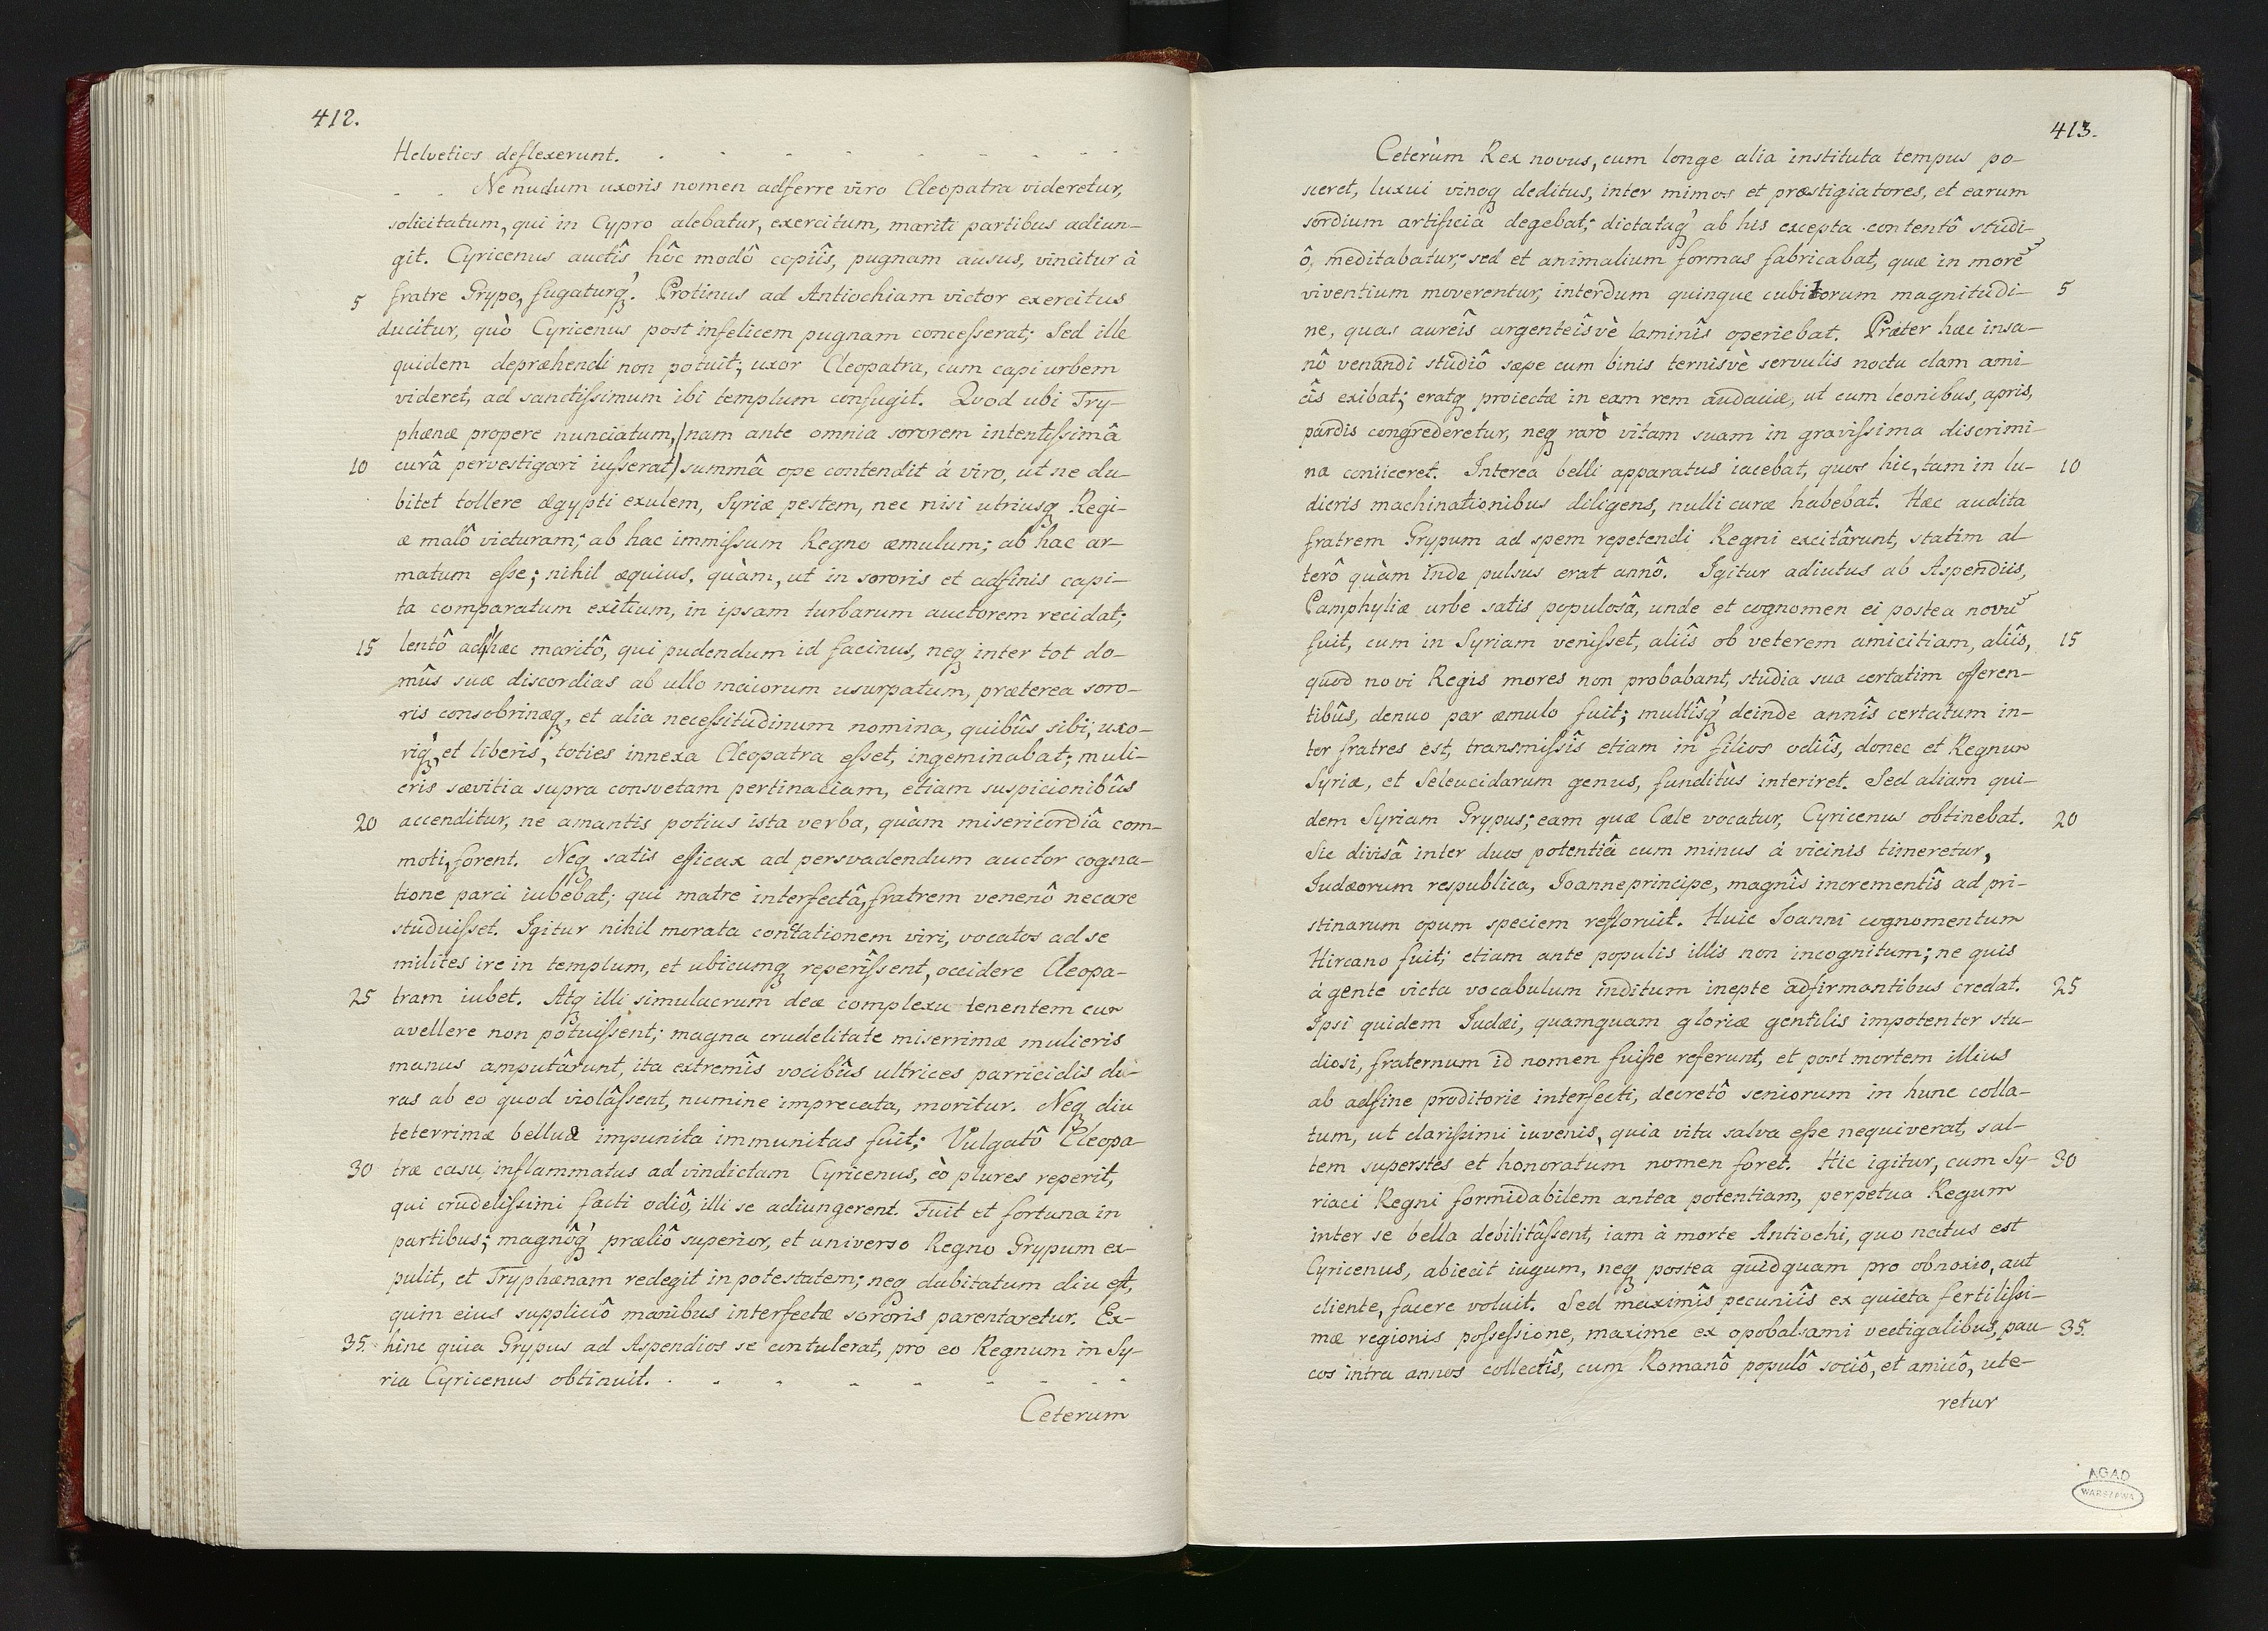 412.
Helvetios deflexerunt. . - - - - - - -
- - Ne nudum uxoris nomen adferre viro Cleopatra videretur,
solicitatum, qui in Cypro alebatur, exercitum, mariti partibus adiun-
git. Cyricenus auctîs hôc modô copiîs, pugnam ausus, vincitur à
5 fratre Grypo, fugaturq́. Protinus ad Antiochiam victor exercitus
ducitur, quò Cyricenus post infelicem pugnam concesserat; Sed ille
quidem depræhendi non potuit; uxor Cleopatra, cum capi urbem
videret, ad sanctissimum ibi templum confugit. Quod ubi Try-
phænæ propere nunciatum,/nam ante omnia sororem intentissimâ
10 curâ pervestigari iusserat/ summâ ope contendit à viro, ut ne du-
bitet tollere ægypti exulem, Syriæ pestem, nec nisi utriusq Regi-
æ malô victuram; ab hac immissum Regno æmulum; ab hac ar-
matum esse; nihil æquius, quàm, ut in sororis et adfinis capi-
ta comparatum exitium, in ipsam turbarum auctorem recidat;
15 lentô ad hæc maritô, qui pudendum id facinus, neq inter tot do-
mûs suæ discordias ab ullo maiorum usurpatum, præterea soro-
ris consobrinæq, et alia necessitudinum nomina, quibûs sibi, uxo-
riq́, et liberis, toties innexa Cleopatra esset, ingeminabat; muli-
eris sævitia supra consvetam pertinaciam, etiam suspicionibûs
20 accenditur, ne amantis potius ista verba, quàm misericordiâ com-
moti, forent. Neq satis efficax ad persvadendum auctor cogna-
tione parci iubebat; qui matre interfectâ, fratrem venenô necare
studuisset. Igitur nihil morata contationem viri, vocatos ad se
milites ire in templum, et ubicumq reperîssent, occidere Cleopa-
25 tram iubet. Atq illi simulacrum deæ complexu tenentem cum
avellere non potuissent; magna crudelitate miserrimæ mulieris
manus amputârunt, ita extremîs vocibûs ultrices parricidis di-
ras ab eo quod violâssent, numine imprecata, moritur. Neq diu
teterrimæ belluæ impunita immunitas fuit; Vulgatô Cleopa-
30 træ casu, inflammatus ad vindictam Cyricenus, eò plures reperit,
qui crudelissimi facti odiô, illi se adiungerent. Fuit et fortuna in
partibus; magnôq́ præliô superior, et universo Regno Grypum ex-
pulit, et Tryphænam redegit in potestatem; neq dubitatum diu est,
quin eius suppliciô manibus interfectæ sororis parentaretur. Ex-
35. hinc quia Grypus ad Aspendios se contulerat, pro eo Regnum in Sy-
ria Cyricenus obtinuit. . - - - - - - -
Ceterum
413.
Ceterùm Rex novus, cum longe alia instituta tempus po-
sceret, luxui vinoq deditus, inter mimos et præstigiatores, et earum
sordium artificia degebat; dictataq́ ab his excepta contentô studi-
ô, meditabatur; sed et animalium formas fabricabat, quæ in more
viventium moverentur, interdum quinque cubitorum magnitudi- 5
ne, quas aureîs argenteîsvè laminîs operiebat. Præter hæc insa-
nô venandi studiô sæpe cum binis ternisvè servulis noctu clam ami-
cîs exibat; eratq proiectæ in eam rem audaciæ, ut cum leonibus, apris,
pardis congrederetur, neq rarò vitam suam in gravissima discrimi-
na coniiceret. Interea belli apparatus iacebat, quos hic, tam in lu- 10
dicris machinationibus diligens, nulli curæ habebat. Hæc audita
fratrem Grypum ad spem repetendi Regni excitârunt, statim al-
terô quàm inde pulsus erat annô. Igitur adiutus ab Aspendiis,
Pamphyliæ urbe satis populosâ, unde et cognomen ei postea novu
fuit, cum in Syriam venisset, aliîs ob veterem amicitiam, aliîs, 15
quod novi Regis mores non probabant, studia sua certatim offeren-
tibûs, denuo par æmulo fuit; multîsq́ deinde annîs certatum in-
ter fratres est, transmissîs etiam in filios odiîs, donec et Regnum
Syriæ, et Seleucidarum genus, funditùs interiret. Sed aliam qui-
dem Syriam Grypus; eam quæ Cæle vocatur, Cyricenus obtinebat. 20
Sic divisâ inter duos potentiâ cum minus à vicinis timeretur,
Iudæorum respublica, Ioanne principe, magnîs incrementîs ad pri-
stinarum opum speciem refloruit. Huic Ioanni cognomentum
Hircano fuit; etiam ante populis illis non incognitum; ne quis
à gente victa vocabulum inditum inepte adfirmantibus credat. 25
Ipsi quidem Iudæi, quamquam gloriæ gentilis impotenter stu-
diosi, fraternum id nomen fuisse referunt, et post mortem illius
ab adfine proditorie interfecti, decretô seniorum in hunc colla-
tum, ut clarissimi iuvenis, quia vita salva esse nequiverat, sal-
tem superstes et honoratum nomen foret. Hic igitur, cum Sy- 30
riaci Regni formidabilem antea potentiam, perpetua Regum
inter se bella debilitâssent, iam à morte Antiochi, quo natus est
Cyricenus, abiecit iugum, neq postea quidquam pro obnoxio, aut
cliente, facere voluit. Sed maximîs pecuniîs ex quieta fertilissi-
mæ regionis possessione, maxime ex opobalsami vectigalibus, pau- 35.
cos intra annos collectîs, cum Romanô populô sociô, et amicô, ute-
retur
AGAD
WARSZAWA